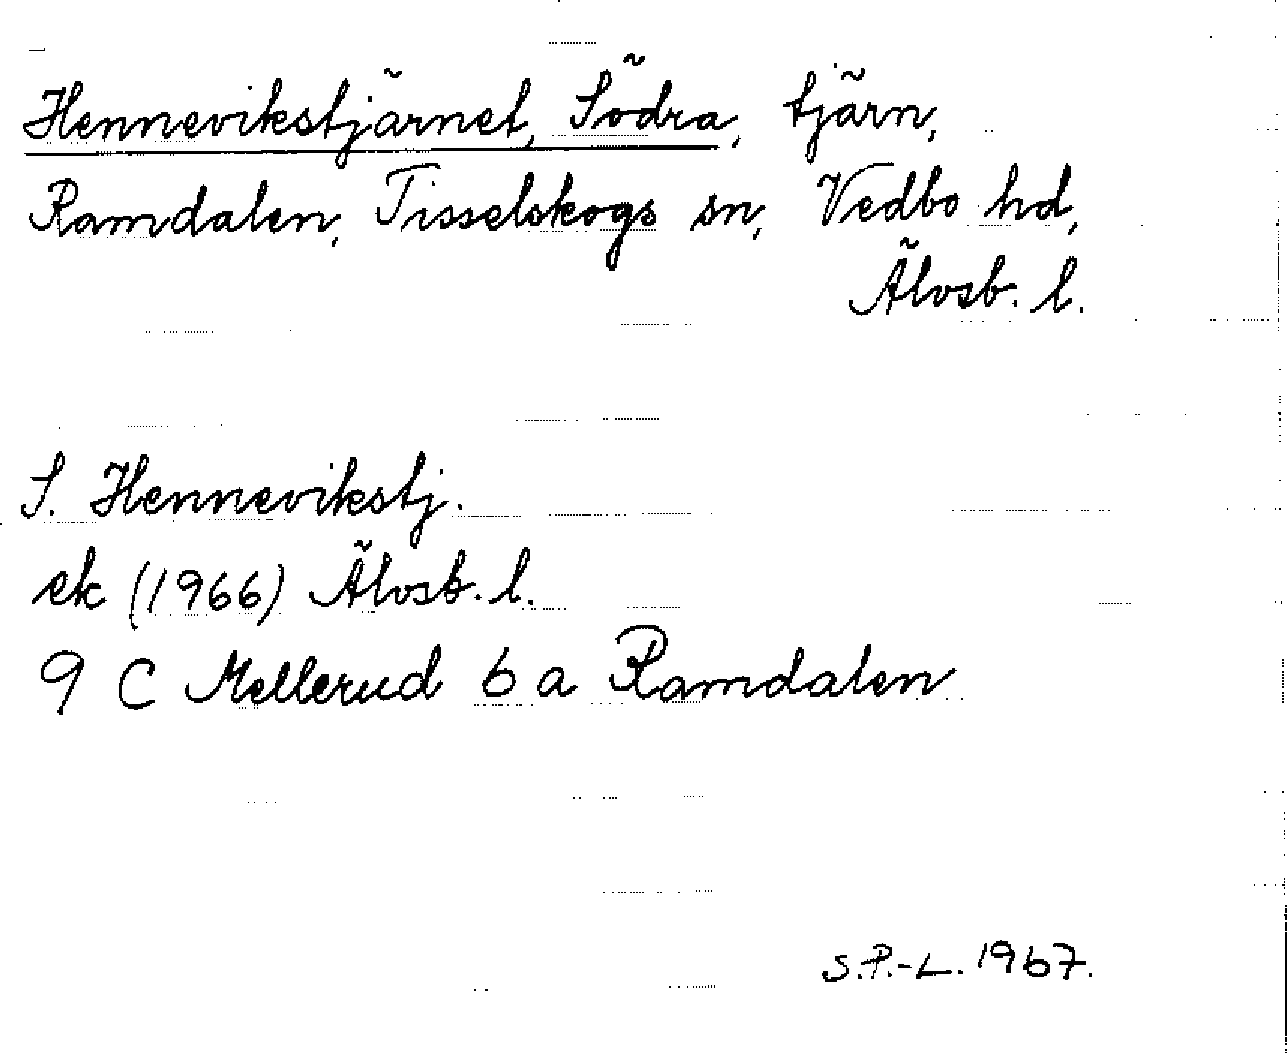 Hennevikstjärnet, Södra, tjärn,
Ramdalen, Tisselskogs sn, Vedbo hd,
Älvsb. l.
S. Hennevikstj.
ek (1966) Älvsb. l.
9 C Mellerud 6 a Ramdalen
S.P.-L. 1967.